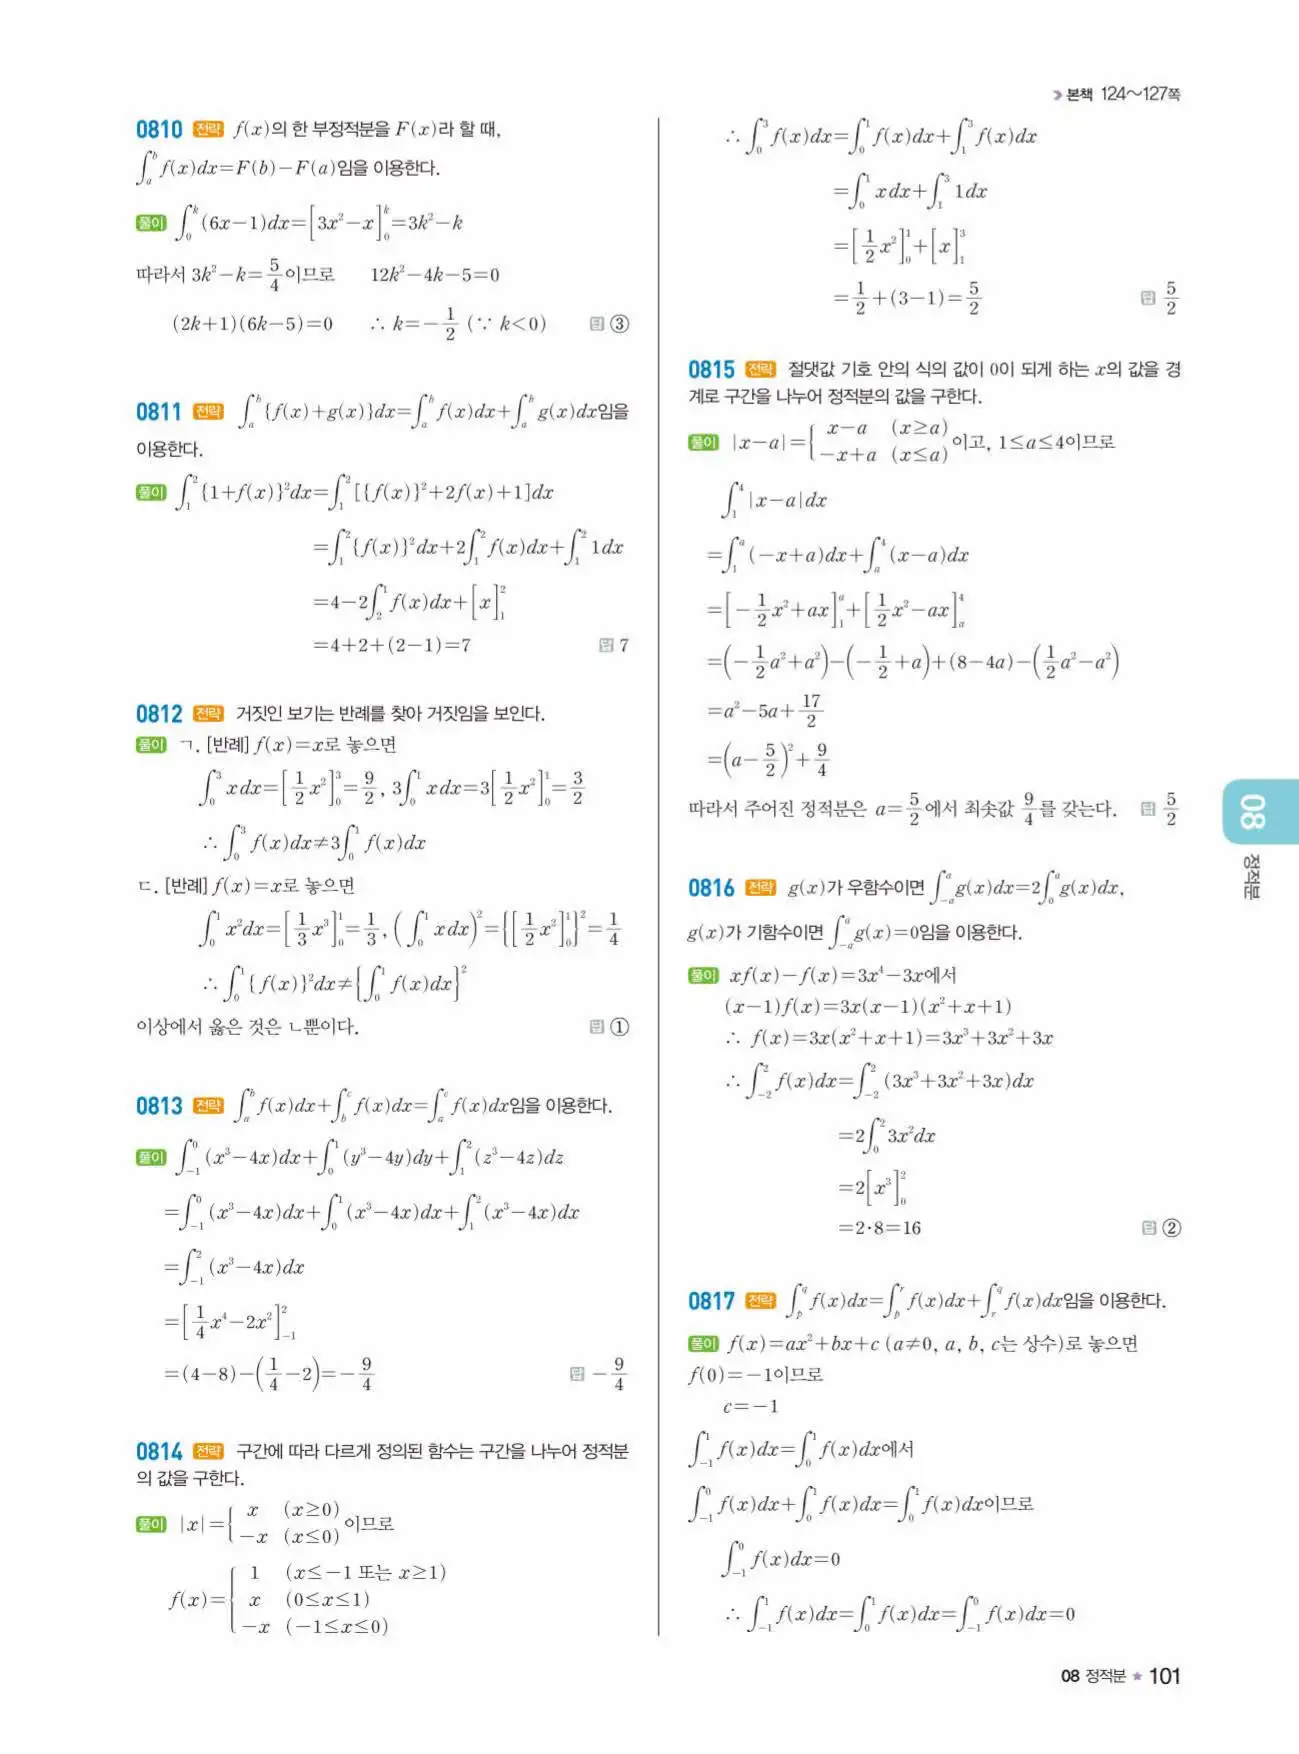 본책 124~127쪽
0810 전략 f(x)의 한 부정적분을 F(x)라 할 때,
∫_a^b f(x)dx=F(b)-F(a)임을 이용한다.
풀이 ∫_0^k (6x-1)dx=[3x²-x]_0^k=3k²-k
따라서 3k²-k=5/4이므로 12k²-4k-5=0
(2k+1)(6k-5)=0 ∴ k=-1/2 (∵ k<0) 답 ③
0811 전략 ∫_a^b {f(x)+g(x)}dx=∫_a^b f(x)dx+∫_a^b g(x)dx임을
이용한다.
풀이 ∫_1^2 {1+f(x)}²dx=∫_1^2 [{f(x)}²+2f(x)+1]dx
=∫_1^2 {f(x)}²dx+2∫_1^2 f(x)dx+∫_1^2 1dx
=4-2∫_2^1 f(x)dx+[x]_1^2
=4+2+(2-1)=7 답 7
0812 전략 거짓인 보기는 반례를 찾아 거짓임을 보인다.
풀이 ㄱ. [반례] f(x)=x로 놓으면
∫_0^3 xdx=[1/2 x²]_0^3=9/2, 3∫_0^1 xdx=3[1/2 x²]_0^1=3/2
∴ ∫_0^3 f(x)dx≠3∫_0^1 f(x)dx
ㄷ. [반례] f(x)=x로 놓으면
∫_0^1 x²dx=[1/3 x³]_0^1=1/3, (∫_0^1 xdx)²={[1/2 x²]_0^1}²=1/4
∴ ∫_0^1 {f(x)}²dx≠{∫_0^1 f(x)dx}²
이상에서 옳은 것은 ㄴ뿐이다. 답 ①
0813 전략 ∫_a^b f(x)dx+∫_b^c f(x)dx=∫_a^c f(x)dx임을 이용한다.
풀이 ∫_{-1}^0 (x³-4x)dx+∫_0^1 (y³-4y)dy+∫_1^2 (z³-4z)dz
=∫_{-1}^0 (x³-4x)dx+∫_0^1 (x³-4x)dx+∫_1^2 (x³-4x)dx
=∫_{-1}^2 (x³-4x)dx
=[1/4 x⁴-2x²]_{-1}^2
=(4-8)-(1/4-2)=-9/4 답 -9/4
0814 전략 구간에 따라 다르게 정의된 함수는 구간을 나누어 정적분
의 값을 구한다.
풀이 |x|={ x (x≥0)
-x (x≤0) 이므로
f(x)={ 1 (x≤-1 또는 x≥1)
x (0≤x≤1)
-x (-1≤x≤0)
∴ ∫_0^3 f(x)dx=∫_0^1 f(x)dx+∫_1^3 f(x)dx
=∫_0^1 xdx+∫_1^3 1dx
=[1/2 x²]_0^1+[x]_1^3
=1/2+(3-1)=5/2 답 5/2
0815 전략 절댓값 기호 안의 식의 값이 0이 되게 하는 x의 값을 경
계로 구간을 나누어 정적분의 값을 구한다.
풀이 |x-a|={ x-a (x≥a)
-x+a (x≤a) 이고, 1≤a≤4이므로
∫_1^4 |x-a|dx
=∫_1^a (-x+a)dx+∫_a^4 (x-a)dx
=[-1/2 x²+ax]_1^a+[1/2 x²-ax]_a^4
=(-1/2 a²+a²)-(-1/2+a)+(8-4a)-(1/2 a²-a²)
=a²-5a+17/2
=(a-5/2)²+9/4
따라서 주어진 정적분은 a=5/2에서 최솟값 9/4를 갖는다. 답 5/2
0816 전략 g(x)가 우함수이면 ∫_{-a}^a g(x)dx=2∫_0^a g(x)dx,
g(x)가 기함수이면 ∫_{-a}^a g(x)=0임을 이용한다.
풀이 xf(x)-f(x)=3x⁴-3x에서
(x-1)f(x)=3x(x-1)(x²+x+1)
∴ f(x)=3x(x²+x+1)=3x³+3x²+3x
∴ ∫_{-2}^2 f(x)dx=∫_{-2}^2 (3x³+3x²+3x)dx
=2∫_0^2 3x²dx
=2[x³]_0^2
=2·8=16 답 ②
0817 전략 ∫_p^q f(x)dx=∫_p^r f(x)dx+∫_r^q f(x)dx임을 이용한다.
풀이 f(x)=ax²+bx+c (a≠0, a, b, c는 상수)로 놓으면
f(0)=-1이므로
c=-1
∫_{-1}^1 f(x)dx=∫_0^1 f(x)dx에서
∫_{-1}^0 f(x)dx+∫_0^1 f(x)dx=∫_0^1 f(x)dx이므로
∫_{-1}^0 f(x)dx=0
∴ ∫_{-1}^1 f(x)dx=∫_0^1 f(x)dx=∫_{-1}^0 f(x)dx=0
08
정적분
08 정적분 ★ 101